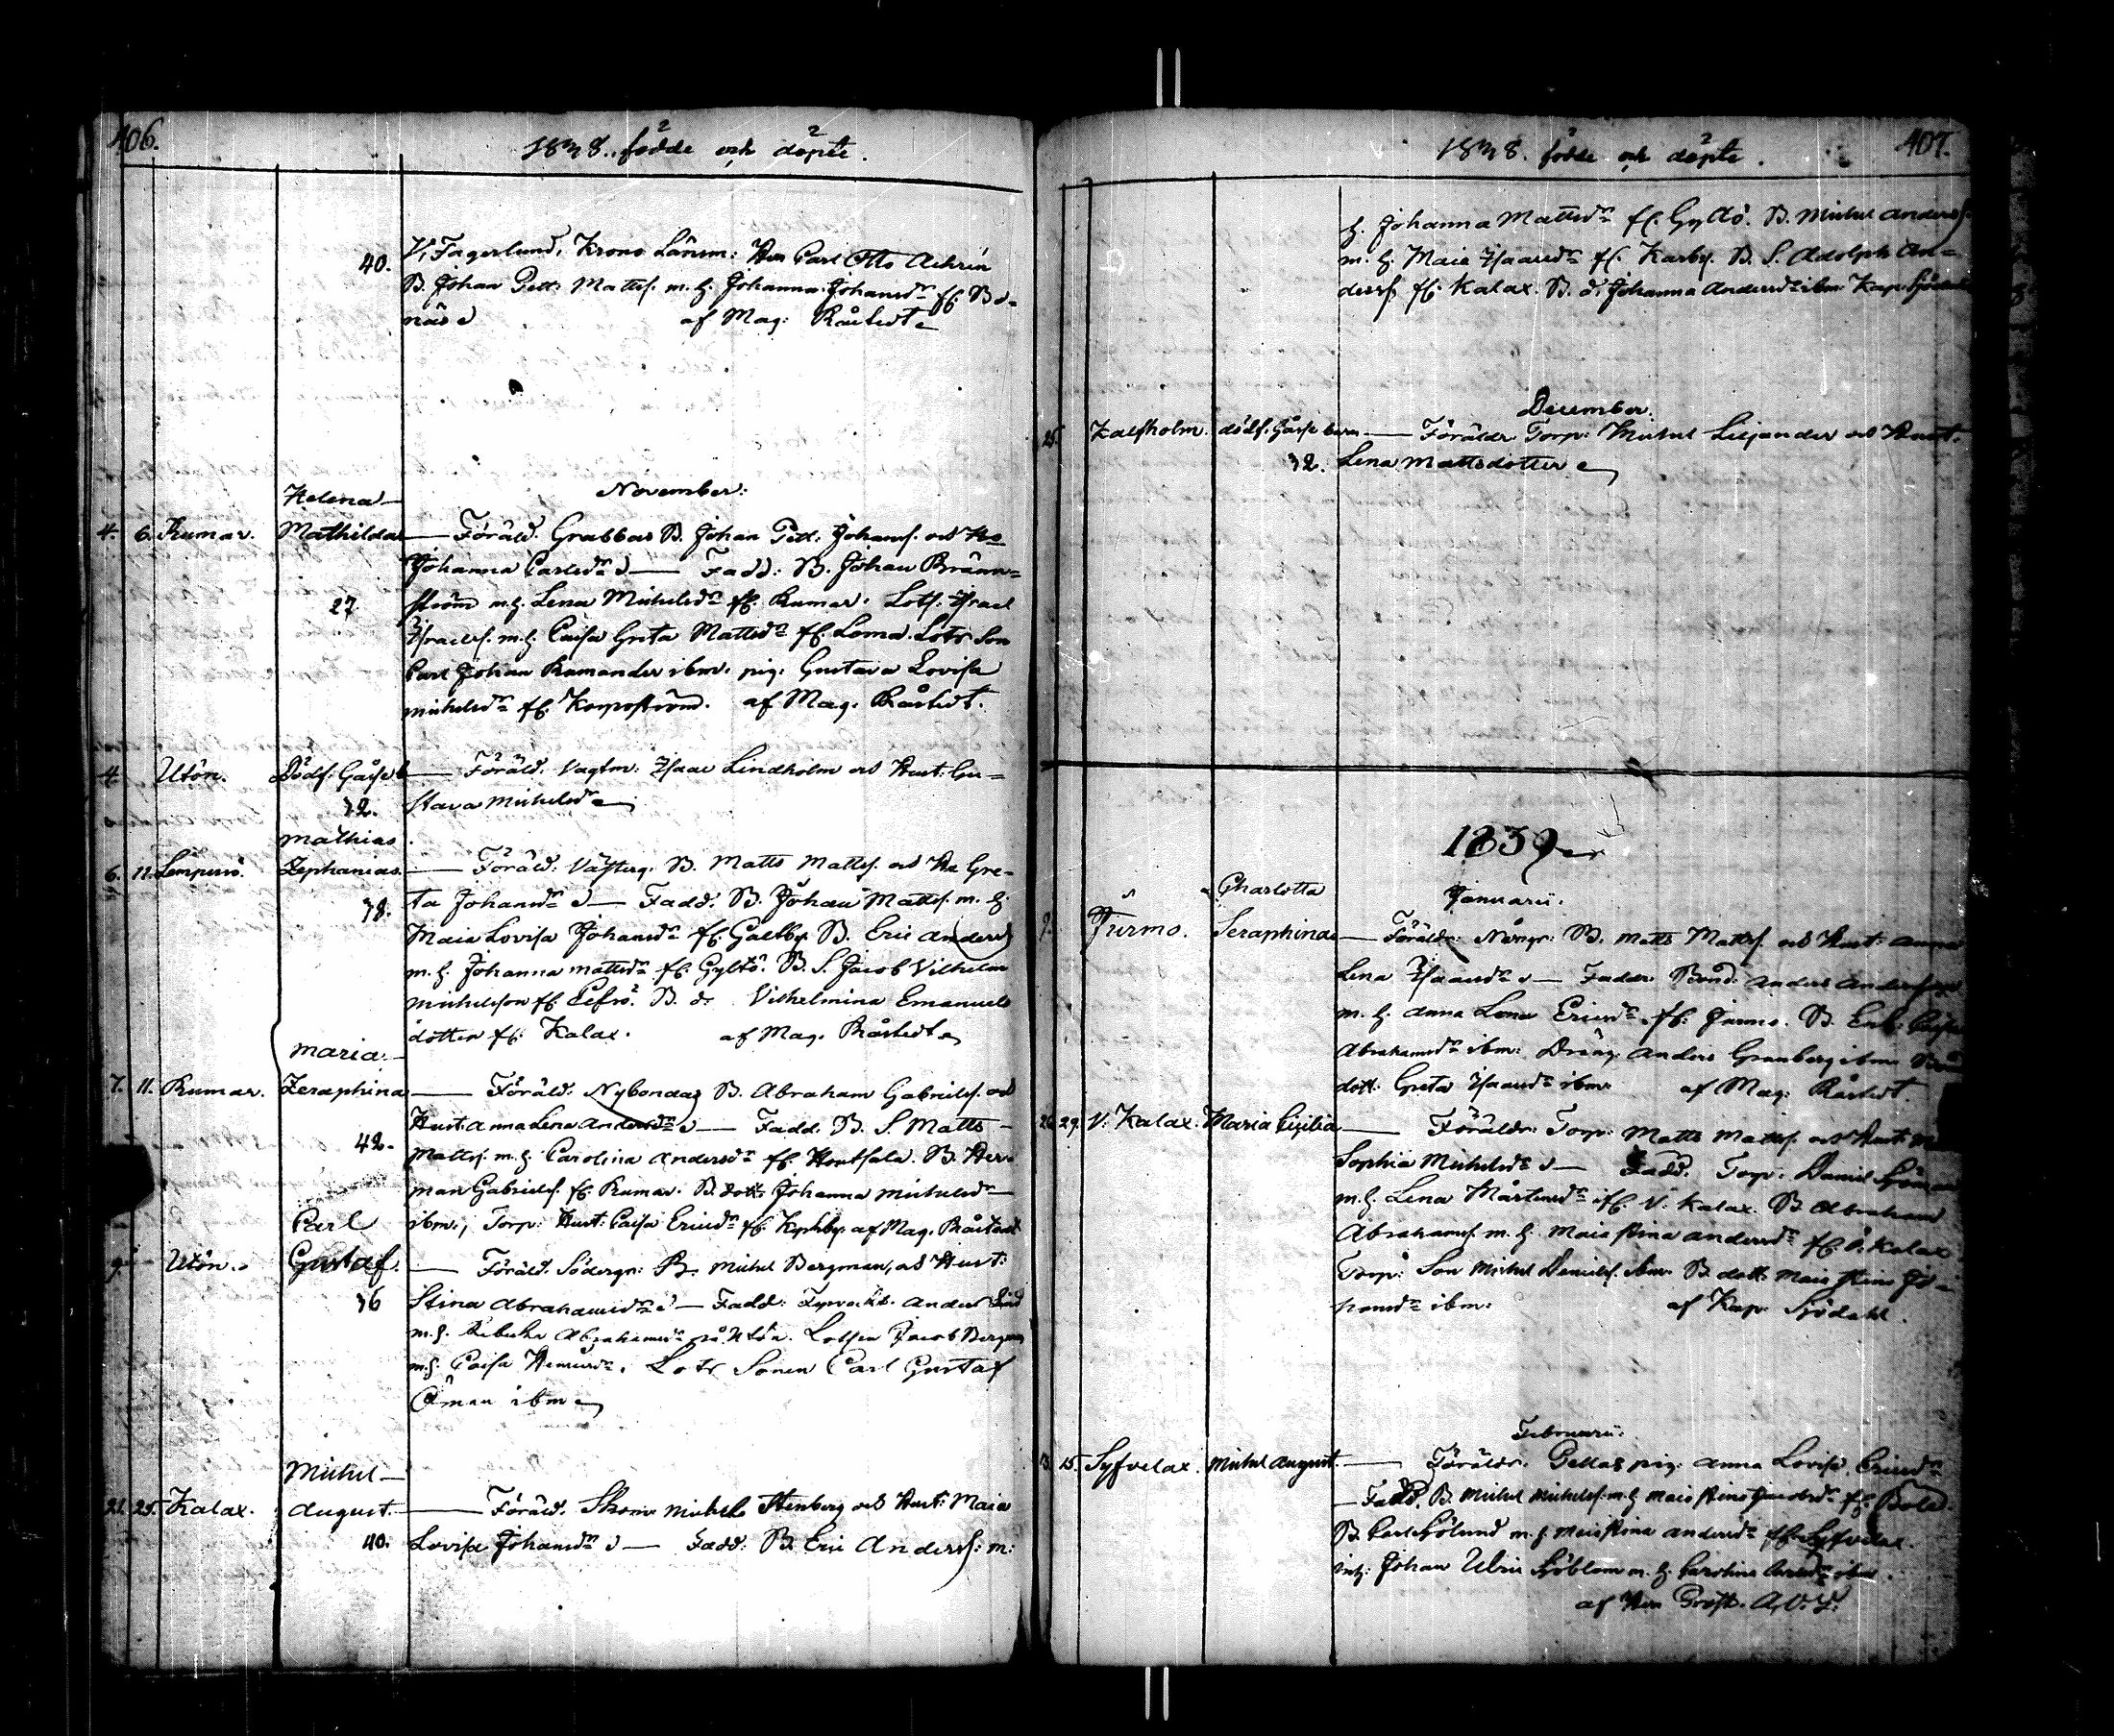 406.
1838. födde och döpte.
40. V, Fagerlund, Krono Länsm: Herr Carl Otto
B. Johan Petter Matts. m. h. Johanna Johansdr fr. Bo-
näs af Mag: Råstedt
November:
Helena
4. 6. Rumar. Mathilda — Föräld. Grabbas B. Johan Pett. Johans. och Ho
Johanna Carlsdr — Fadd: B. Johan Bränn-
27 ström m.h. Lena Michelsdr fr. Rumar. Lots. Israel
Israels. m.h. Caisa Greta Mattsdr fr. Loma. Lots Son
Carl Johan Rumander ibm. pig. Gustava Lovisa
Michelsdr fr. Korpoström. af Mag. Råstedt.
4. Utön. Dödf. Gåsse b — Föräld. Vagtm: Isaac Lindholm och Hust: Gu-
32. stava Michelsdr
Mathias
6. 11. Lempersö. Zephanias. — Föräld. Västerg. B. Matts Matts. och Ho Gre-
38. ta Johansdr — Fadd. B. Johan Matts. m. h.
Maia Lovisa Johansdr fr. Galtby. B. Eric Anders
m. h. Johanna Mattsdr fr. Gyltö. B. S. Jacob Vilhelm
Michelsson fr. B. d. Vilhelmina Emanuels
dotter fr. Kalax. af Mag. Råstedt
Maria
7. 11. Rumar. Zeraphina — Föräld: Nybondas B. Abraham Gabriels. och
Hust. Anna Lena Andersdr — Fadd. B. S. Matts
42. Matts. m. h. Carolina Andersdr fr. Houtsala. B. Her-
man Gabriels. fr. Rumar. B. dott. Johanna Michelsdr
ibm, Torp: Hust: Caisa Ericsdr fr. af Mag. Råstedt
Carl
9. Utön. Gustaf. — Föräld. Södergr: B. Michel Bergman, och Hust:
36 Stina Abrahamsdr — Fadd: Anders
m.h. Rebecka Abrahamsdr på Utön. Lotsen Jacob Bergman
m.h. Caisa Henricsdr. Lots Sonen Carl Gustaf
Öman ibm
Michel
21. 25. Kalax. August. — Föräld. Skom Michel Stenberg och Hust: Maia
40. Lovisa Johansdr — Fadd: B. Eric Anderss: m:
1838. födde och döpte. 407.
h. Johanna Mattsdr fr. Gyltö. B. Michel Anders
m. h. Maia Isaacsdr fr. Karby. B. S. Adolph An-
derss. fr. Kalax. B. d. Johanna Andersdr ibm. Kap. Sjödahl
December.
25. Kalfholm. dödf. Gåsse barn — Förälder Torp: Michel Liljander och Hust.
32. Lena Mattsdotter
1839
Januarii.
Charlotta
Jurmo. Seraphina — Föräldr: B. Matts Matts. och Hust: Anna
Lena Isaacsdr — Fadder Bond. Anders Andersson
m. h. Anna Lena Ericsdr fr. Jurmo. B. Enk: Caisa
Abrahamsdr ibm: Dräng. Anders Granberg ibm
dott: Greta Isaacsdr ibm af Mag: Råstedt.
26. 29. V. Kalax. Maria Cicilia — Föräldr: Torp: Matts Matts. och Hust.
Sophia Michelsdr — Fadd. Torp. Daniel Sjöman
m.h. Lena Mårtensdr fr. V. Kalax. B. Abraham
Abrahams. m. h. Maia Stina Andersdr fr. Ö. Kalax
Torp: Son Michel Daniels. ibm. B. dott. Maia Stina Jo-
hansdr ibm: af Kap. Sjödahl.
Februarii.
13. 15. Syfvelax. Michel August. — Föräldr. Pellas pig: Anna Lovisa Ericsdr
— Fadd. B. Michel Michels. m.h. Maia Stina Jacobsdr fr.
B. Carl Sjölund m. h. Maia Stina Andersdr fr. Syfvelax.
Inh: Johan Ulric Sjöblom m. h. Carolina ibm
af Herr Prost. A. V. I.